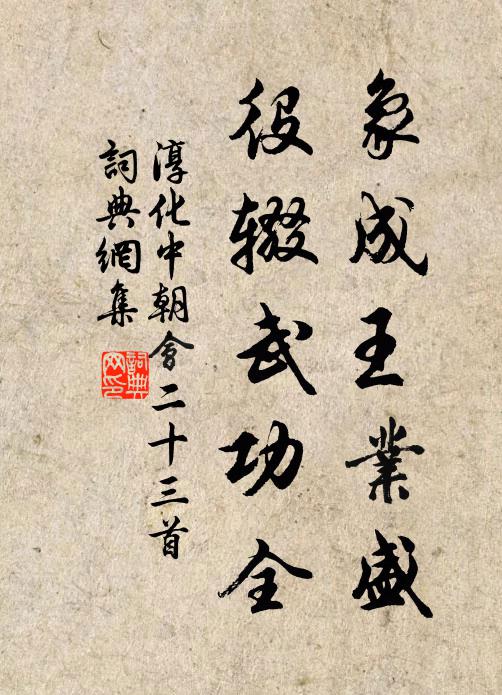 象成王業盛
役辍武功全
淳化中朝會二十三首
詞典網集
詞典
网印